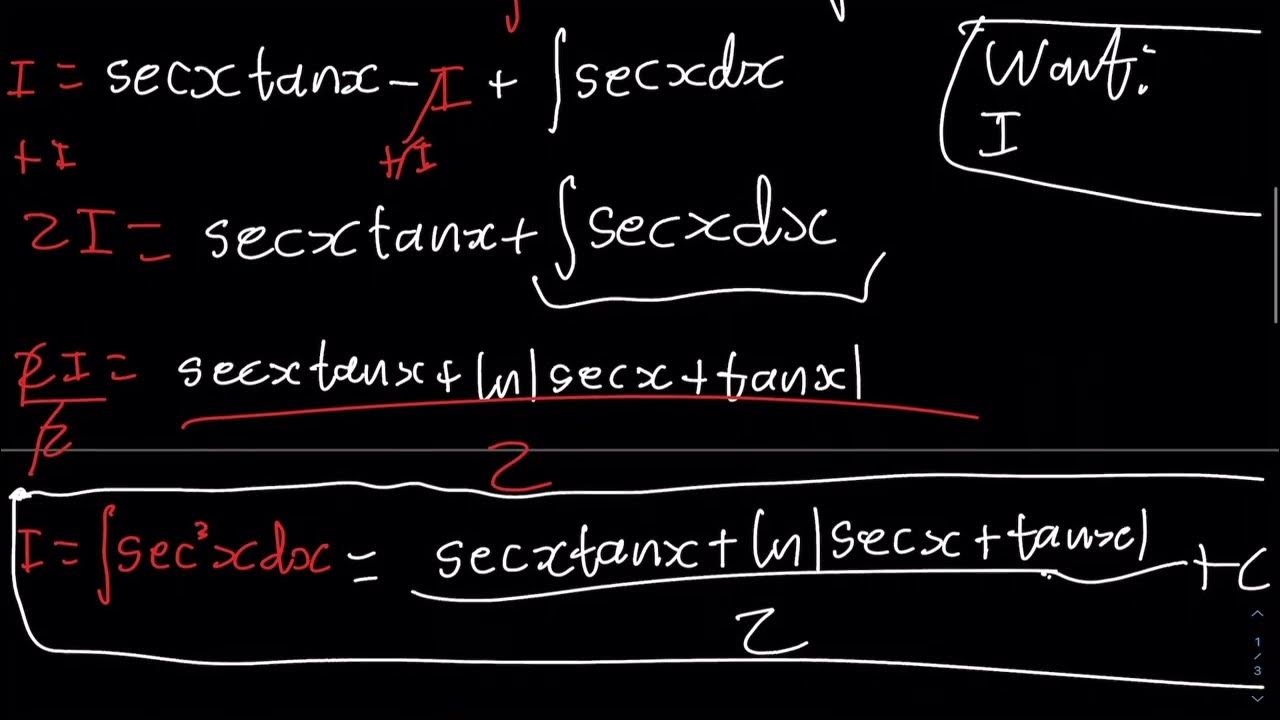 I = secxtanx - I + ∫secxdx
Want:
I
+I +I
2I = secxtanx + ∫secxdx
2I = secxtanx + ln|secx + tanx|
2 2
I = ∫sec³xdx = secxtanx + ln|secx + tanx| + c
2
1
/
3